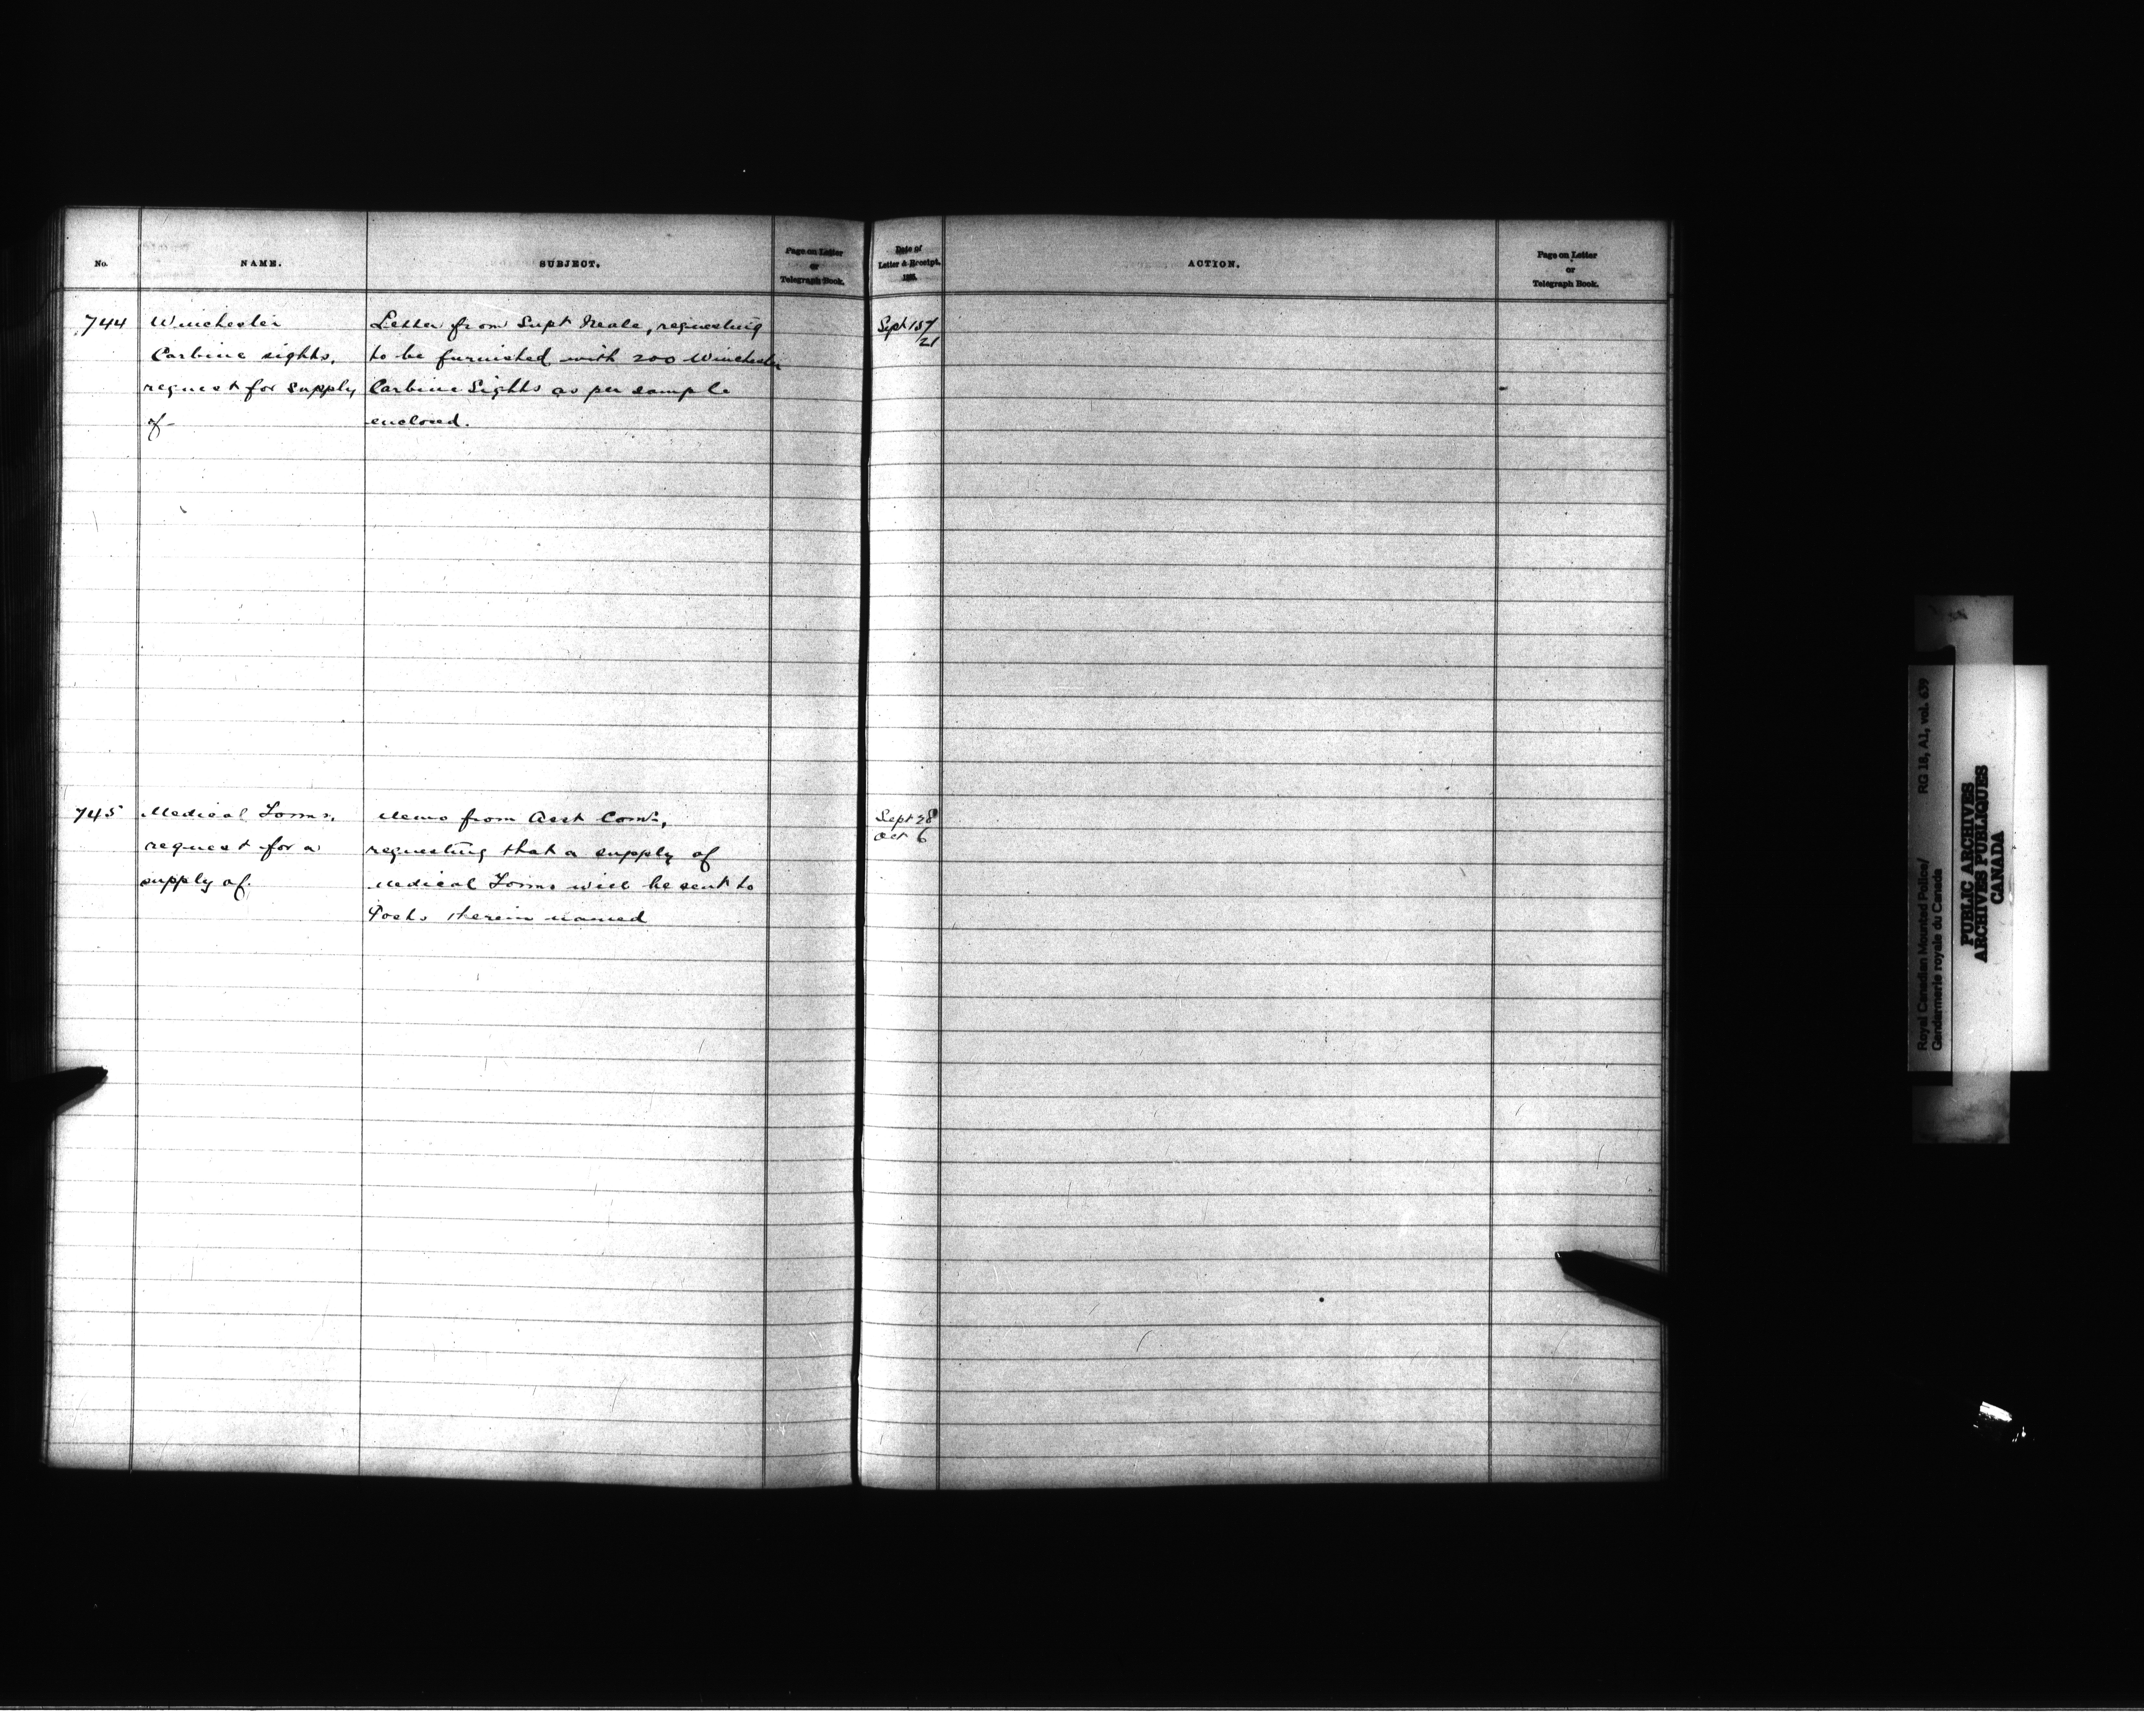 No.
NAME.
SUBJECT.
Page on Letter
or
Telegraph Book.
Date of
Letter & Receipt.
ACTION.
Page on Letter
or
Telegraph Book.
744
Winchester
Carbine sights,
request for supply
of-
Letter from Supt Neale, requesting
to be furnished with 200 Winchester
Carbine Sights as per sample
enclosed.
Sept 15/
21
745
Medical Forms,
request for a
supply of.
Memo from Asst Comr,
requesting that a supply of
Medical Forms will be sent to
Posts therein named
Sept 28
Oct 6
Royal Canadian Mounted Police/
Gendarmerie royale du Canada
RG 18, A1, vol. 639
PUBLIC ARCHIVES
ARCHIVES PUBLIQUES
CANADA